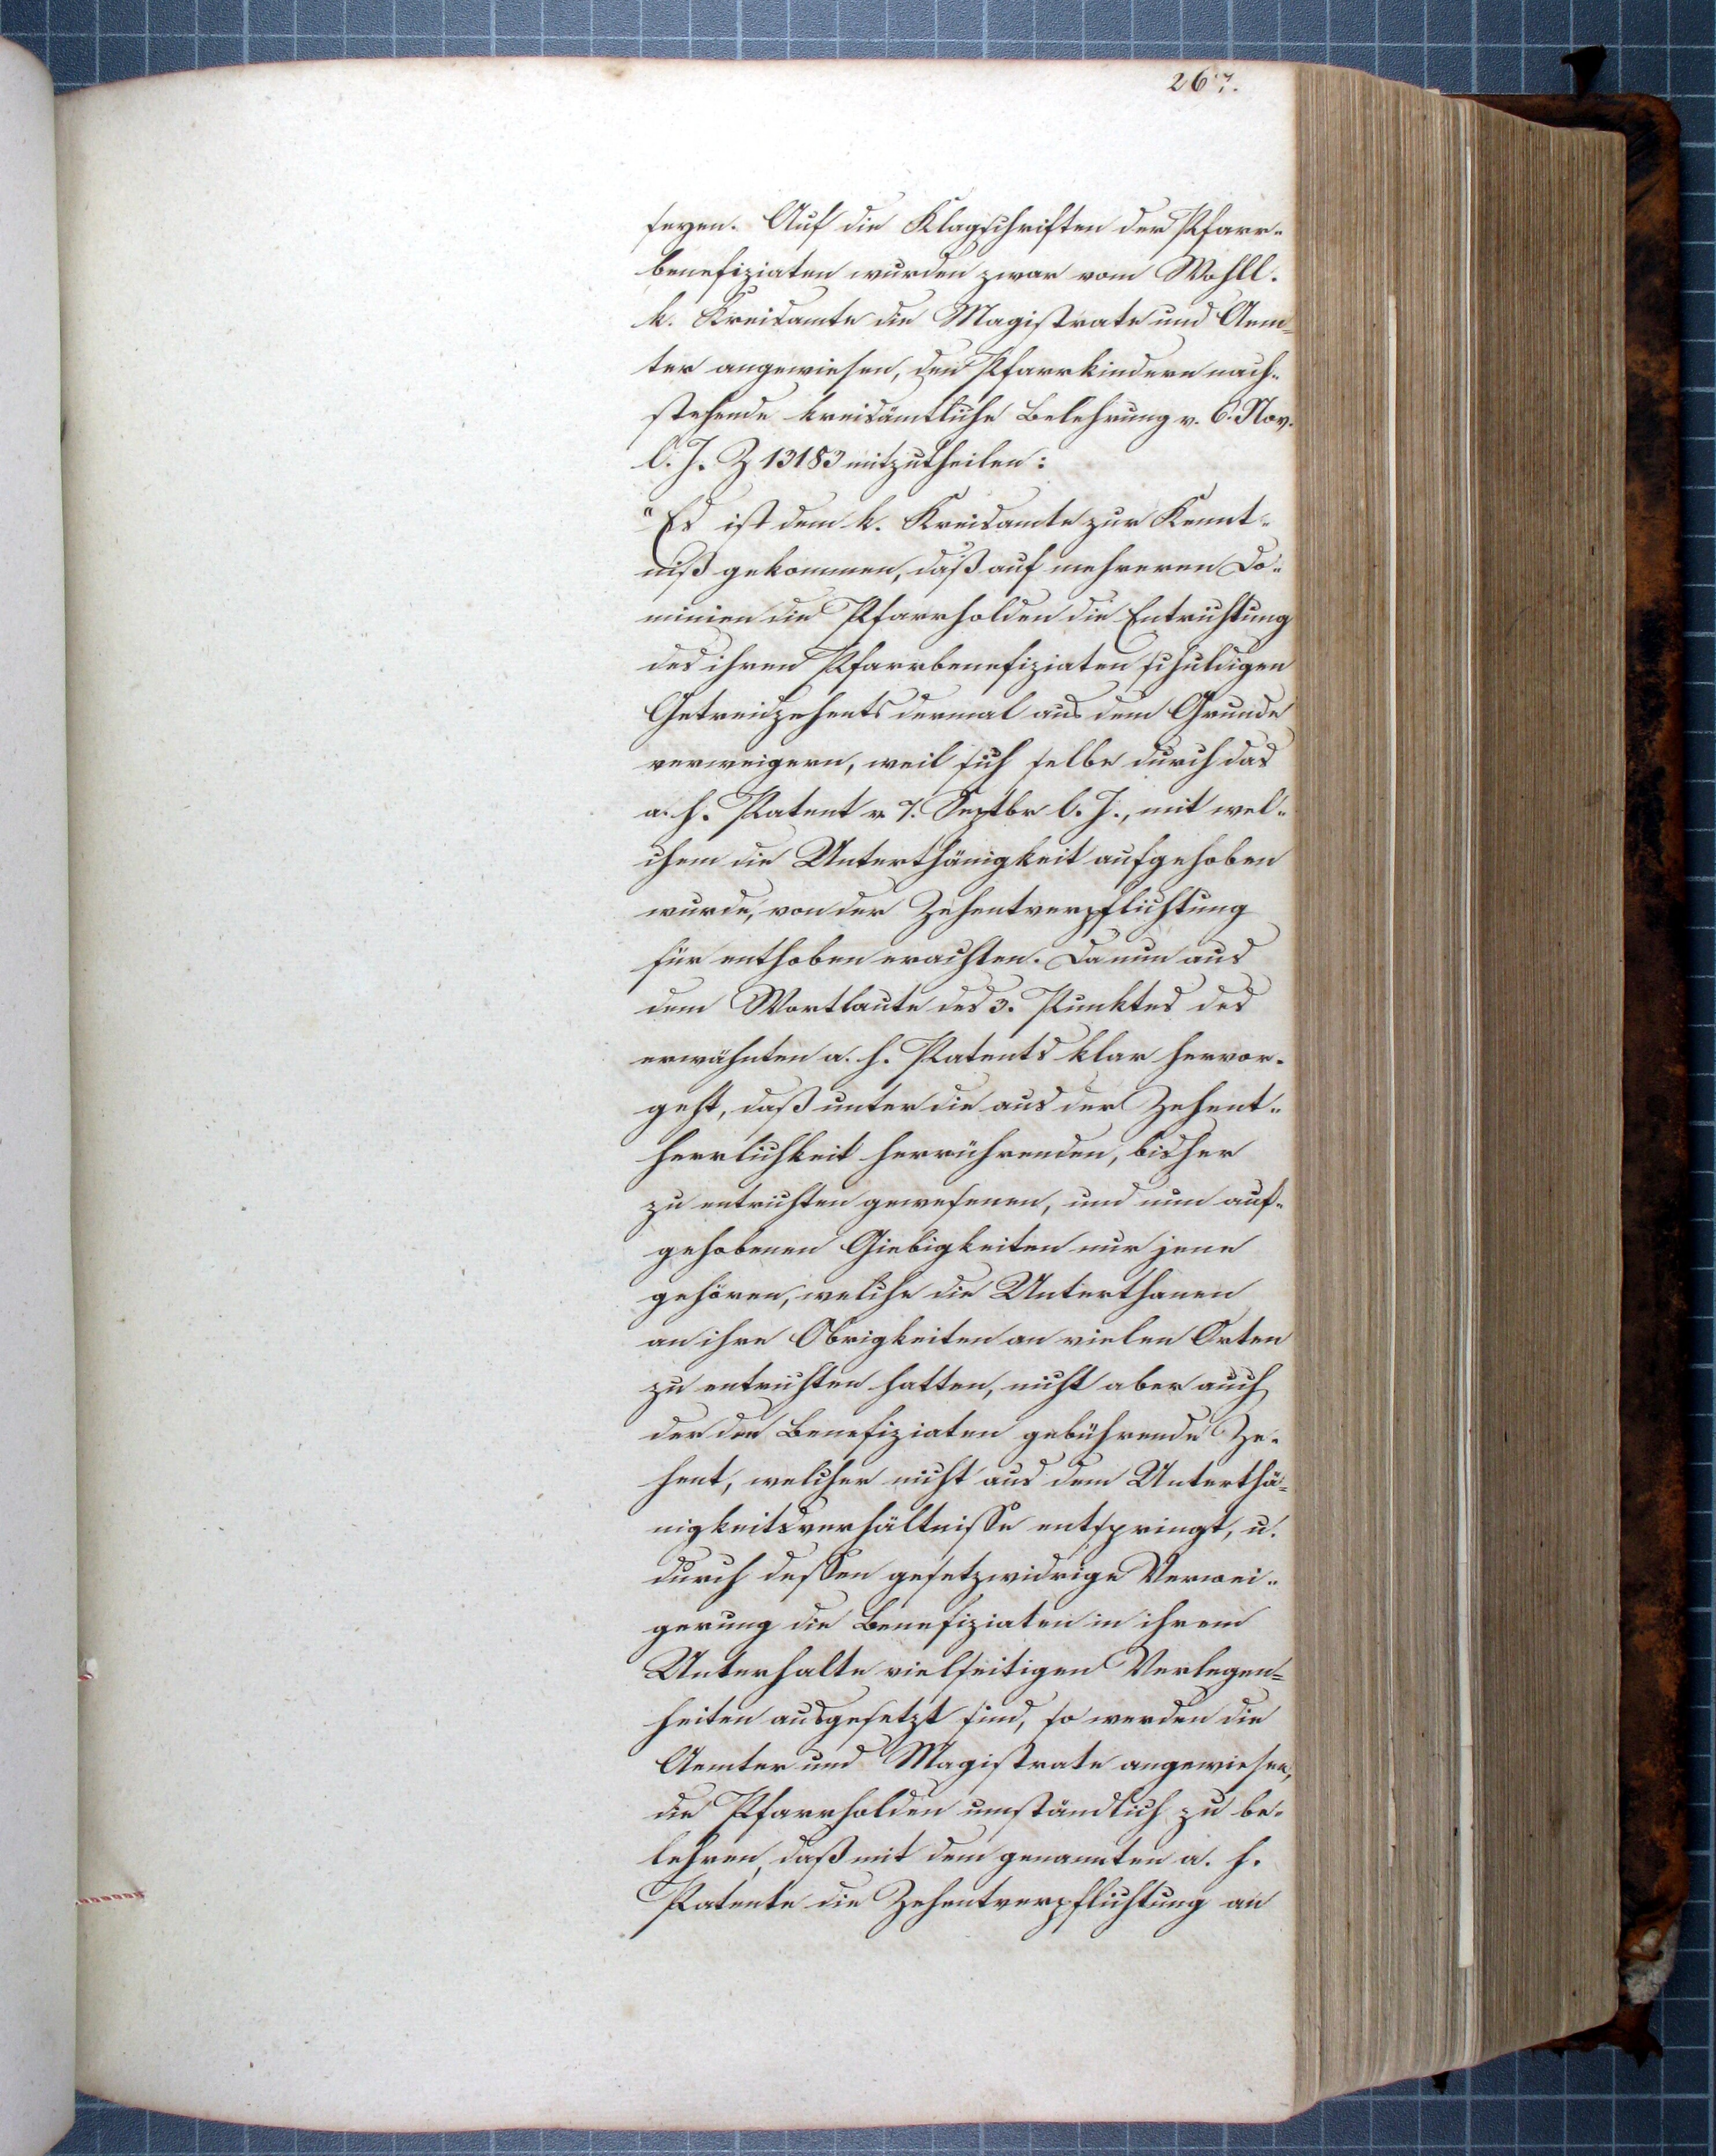 267.
seyen. Auf die Klagschriften der Pfarr-
benefiziaten wurden zwar vom Wohll.
k. Kreisamte die Magistrate und Aem-
ter angewiesen, den Pfarrkindern nach-
stehende kreisämtliche Belehrung v. 6. Nov.
l. J. Z 13183 mitzutheilen:
"Es ist dem k. Kreisamte zur Kennt-
niß gekommen, daß auf mehreren Do-
minien die Pfarrholden die Entrichtung
des ihren Pfarrbenefiziaten schuldigen
Getreidzehents dermal aus dem Grunde
verweigern, weil sich selbe durch das
a. h. Patent v. 7. Septbr l. J., mit wel-
chem die Unterthänigkeit aufgehoben
wurde, von der Zehentverpflichtung
für enthoben erachten. Da nun aus
dem Wortlaute des 3. Punktes des
erwähnten a. h. Patents klar hervor-
geht, daß unter die aus der Zehent-
herrlichkeit herrührenden, bisher
zu entrichten gewesenen, und nun auf-
gehobenen Giebigkeiten nur jene
gehören, welche die Unterthanen
an ihre Obrigkeiten an vielen Orten
zu entrichten hatten, nicht aber auch
der den Benefiziaten gebührende Ze-
hent, welcher nicht aus dem Unterthä-
nigkeitsverhältnisse entspringt, u.
durch dessen gesetzwidrige Verwei-
gerung die Benefiziaten in ihrem
Unterhalte vielseitigen Verlegen-
heiten ausgesetzt sind, so werden die
Aemter und Magistrate angewiesen,
die Pfarrholden umständlich zu be-
lehren, daß mit dem genannten a. h.
Patente die Zehentverpflichtung an